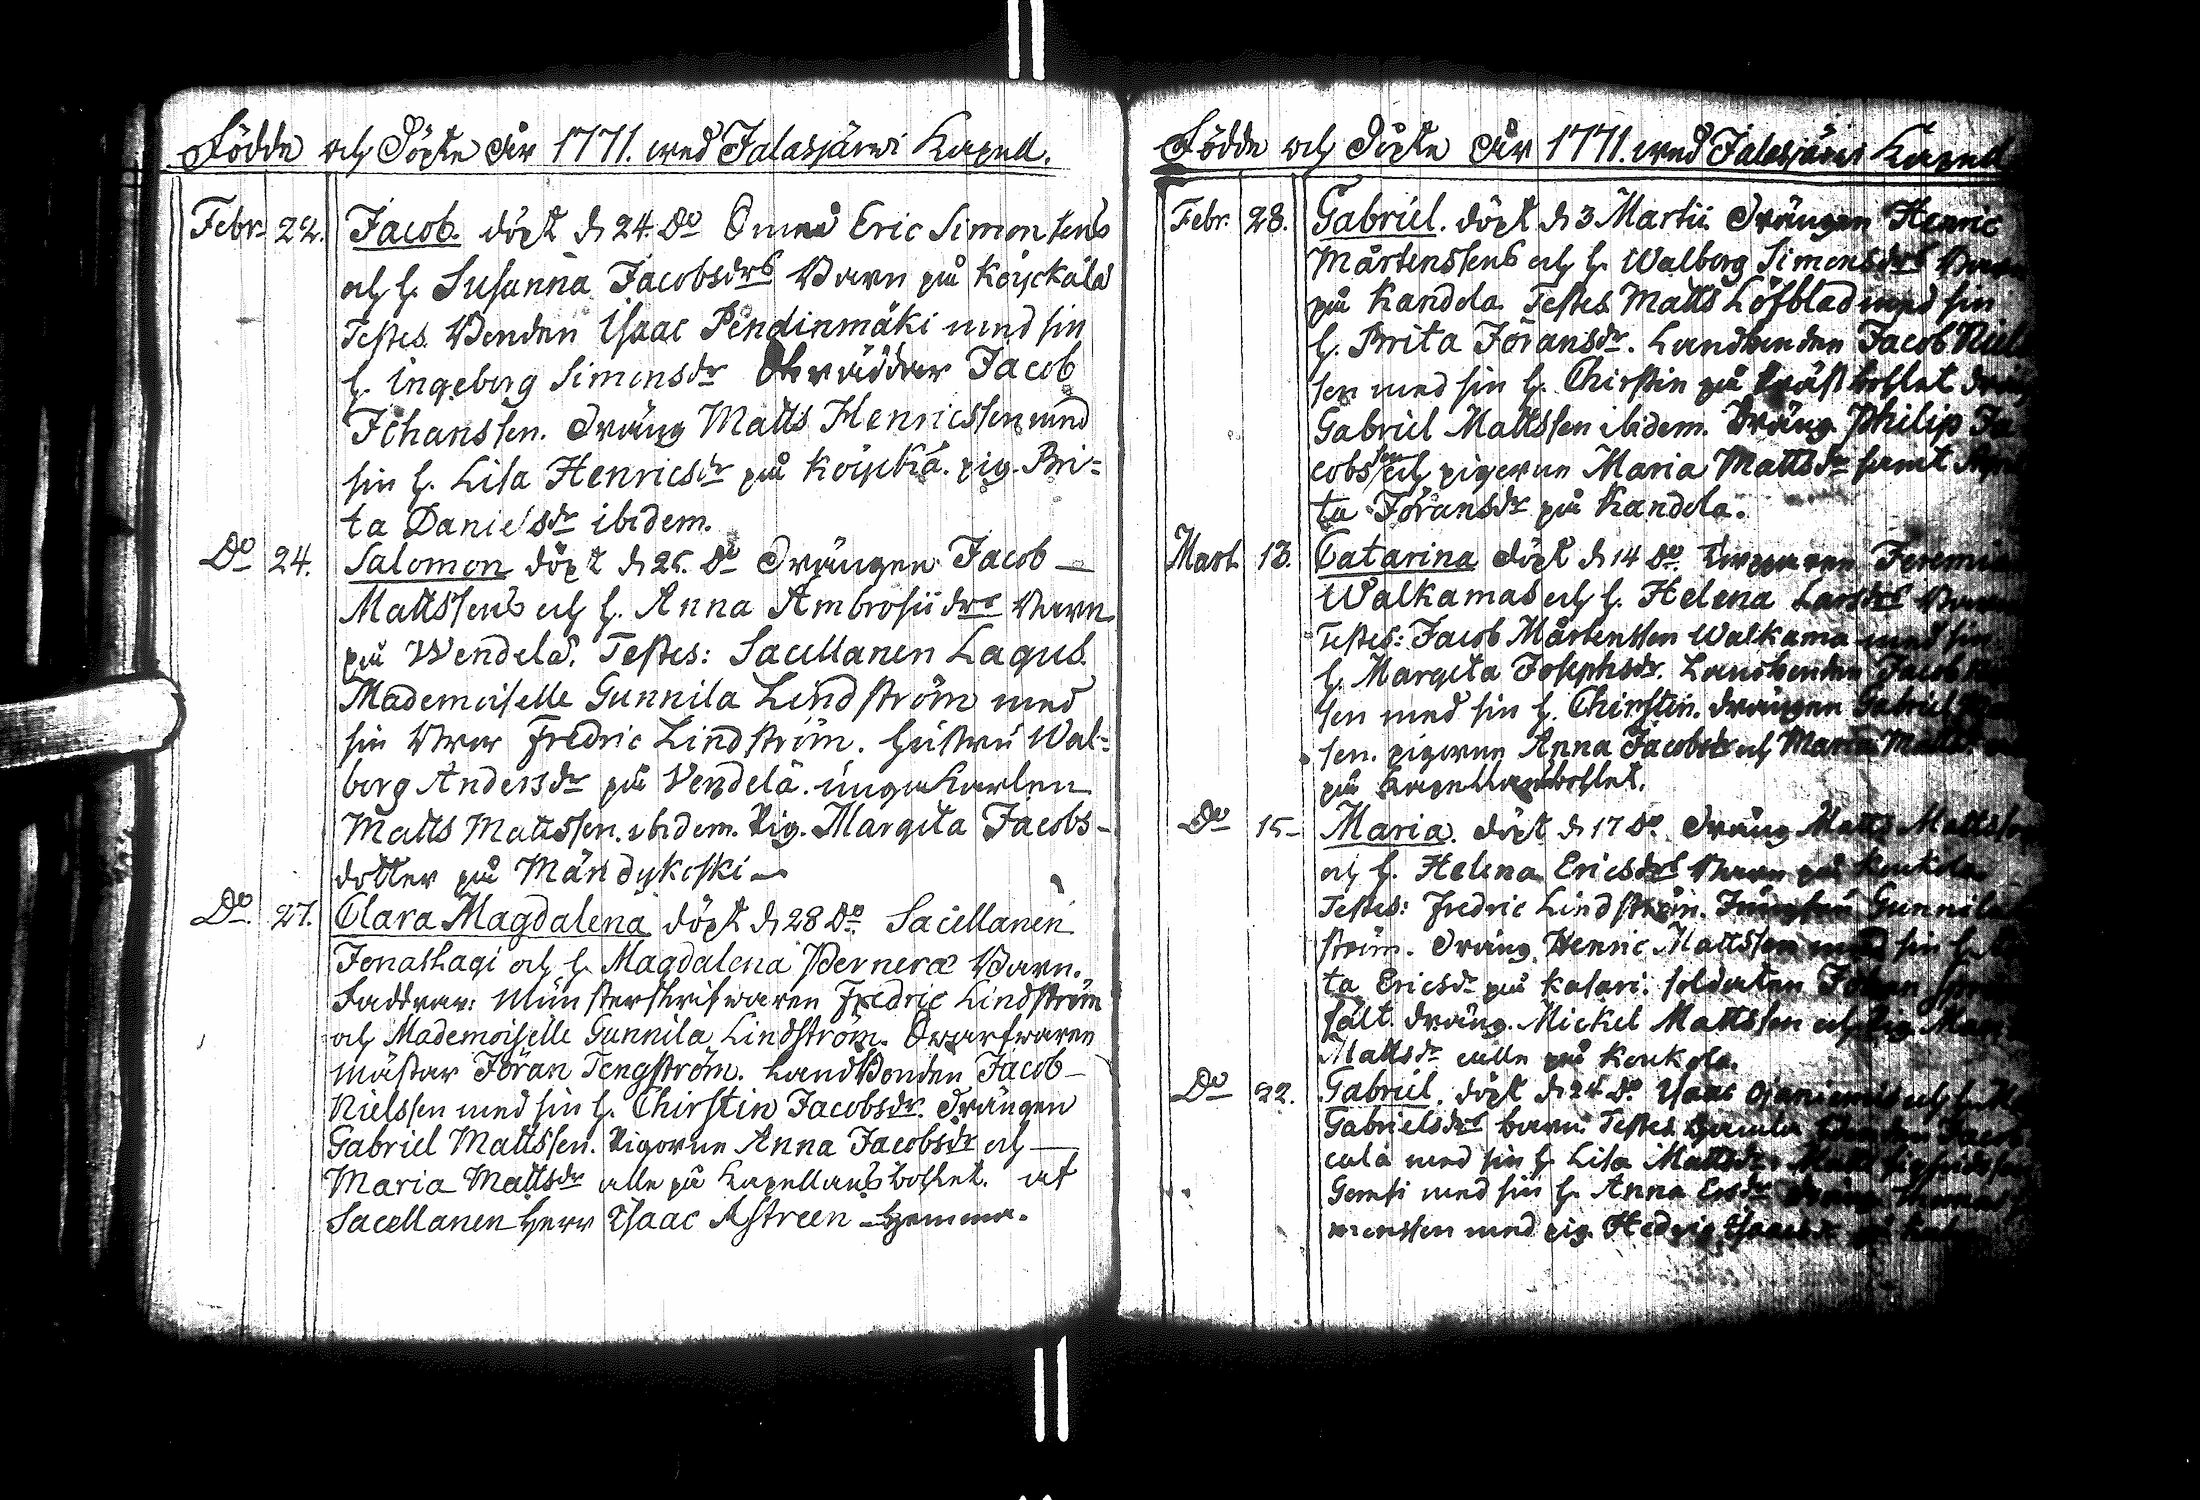 Födde och Döpte År 1771. wed Jalasjärvi Kapell.
Febr. 22. Jacob döpt d. 24. Do Eric Simonsens
och h. Susanna Jacobsdrs Barn på Köyckälä
Testes. Bonden Isaac Pendinmäki med sin
h. Ingeborg Simonsdr Jacob
Johanssen. Dräng Matts Henricssen med
sin h. Lisa Henricsdr på Köyckä. pig. Bri-
ta Danielsdr ibidem.
Do 24. Salomon döpt d. 25. Do Drängen Jacob
Mattssens och h. Anna Ambrosii drs Barn
på Wendelä. Testes: Sacellanen Lagus
Mademoiselle Gunnila Lindström med
sin Bror Fredric Lindström. hustru Wal-
borg Andersdr på Vendelä. unga Karlen
Matts Mattssen. ibidem. Pig. Margeta Jacobs-
dotter på Mändykoski
Do 27. Clara Magdalena döpt d. 28 Do Sacellanen
Jonas Lagi och h. Magdalena Perneræ Barn.
Faddrar: Münsterskrifwaren Fredric Lindström
och Mademoiselle Gunnila Lindström.
mästar Jöran Tengström. Landbonden Jacob
Nielssen med sin h. Chirstin Jacobsdr. Drängen
Gabriel Mattssen. Pigorne Anna Jacobsdr och
Maria Mattsdr alle på Kapellansbohlet. af
Sacellanen Herr Isaac Astreen hemma.
Födde och Döpte År 1771. wed Jalasjärvi Kapell
Febr. 28. Gabriel. döpt d. 3 Martii. Drängen Henric
Mårtenssens och h. Walborg Simonsdrs Barn
på Kandola. Testes Matts Löfblad med sin
h. Brita Jöransdr. Landbonden Jacob Niel
sen med sin h. Chirstin på Prästbohlet
Gabriel Mattssen ibidem. Dräng Philip Ja
cobssen och pigorne Maria Mattsdr samt
ta Jöransdr på Kandola.
Mart. 13. Catarina döpt d. 14 Do. Torpparen Jeremia
Walkamas och h. Helena Larsdrs Barn
Testes: Jacob Mårtenssen Walkama med sin
h. Margeta Josephsdr. Landbonden Jacob
sen med sin h. Chirstin. Drängen Gabriel
sen. pigorne Anna Jacobsdr och Maria
på Kapellansbohlet.
Do 15. Maria. döpt d. 17 Do. Dräng Matts Mattssen
och h. Helena Ericsdrs Barn på Koukola
Testes: Fredric Lindström. Jungfru Gunnila
ström. Dräng. Henric Mattssen med sin h.
ta Ericsdr på Kasari. soldaten Johan
fält. Dräng. Mickel Mattssen och Pig. Mar
Mattsdr alle på Koukola.
Do 22. Gabriel. döpt d. 24 Do. Isaac Ojaniemis och
Gabrielsdrs barn. Testes Gamla
cala med sin h. Lisa Mattsdr
med sin h. Anna
med pig. Hedvig Isaacsdr